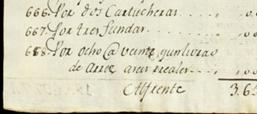 666. Por dos Cartucheras
667. Por tres fundas
668. Por ocho @ veinte quatro libras
de Arroz a reales
Al frente 3.6